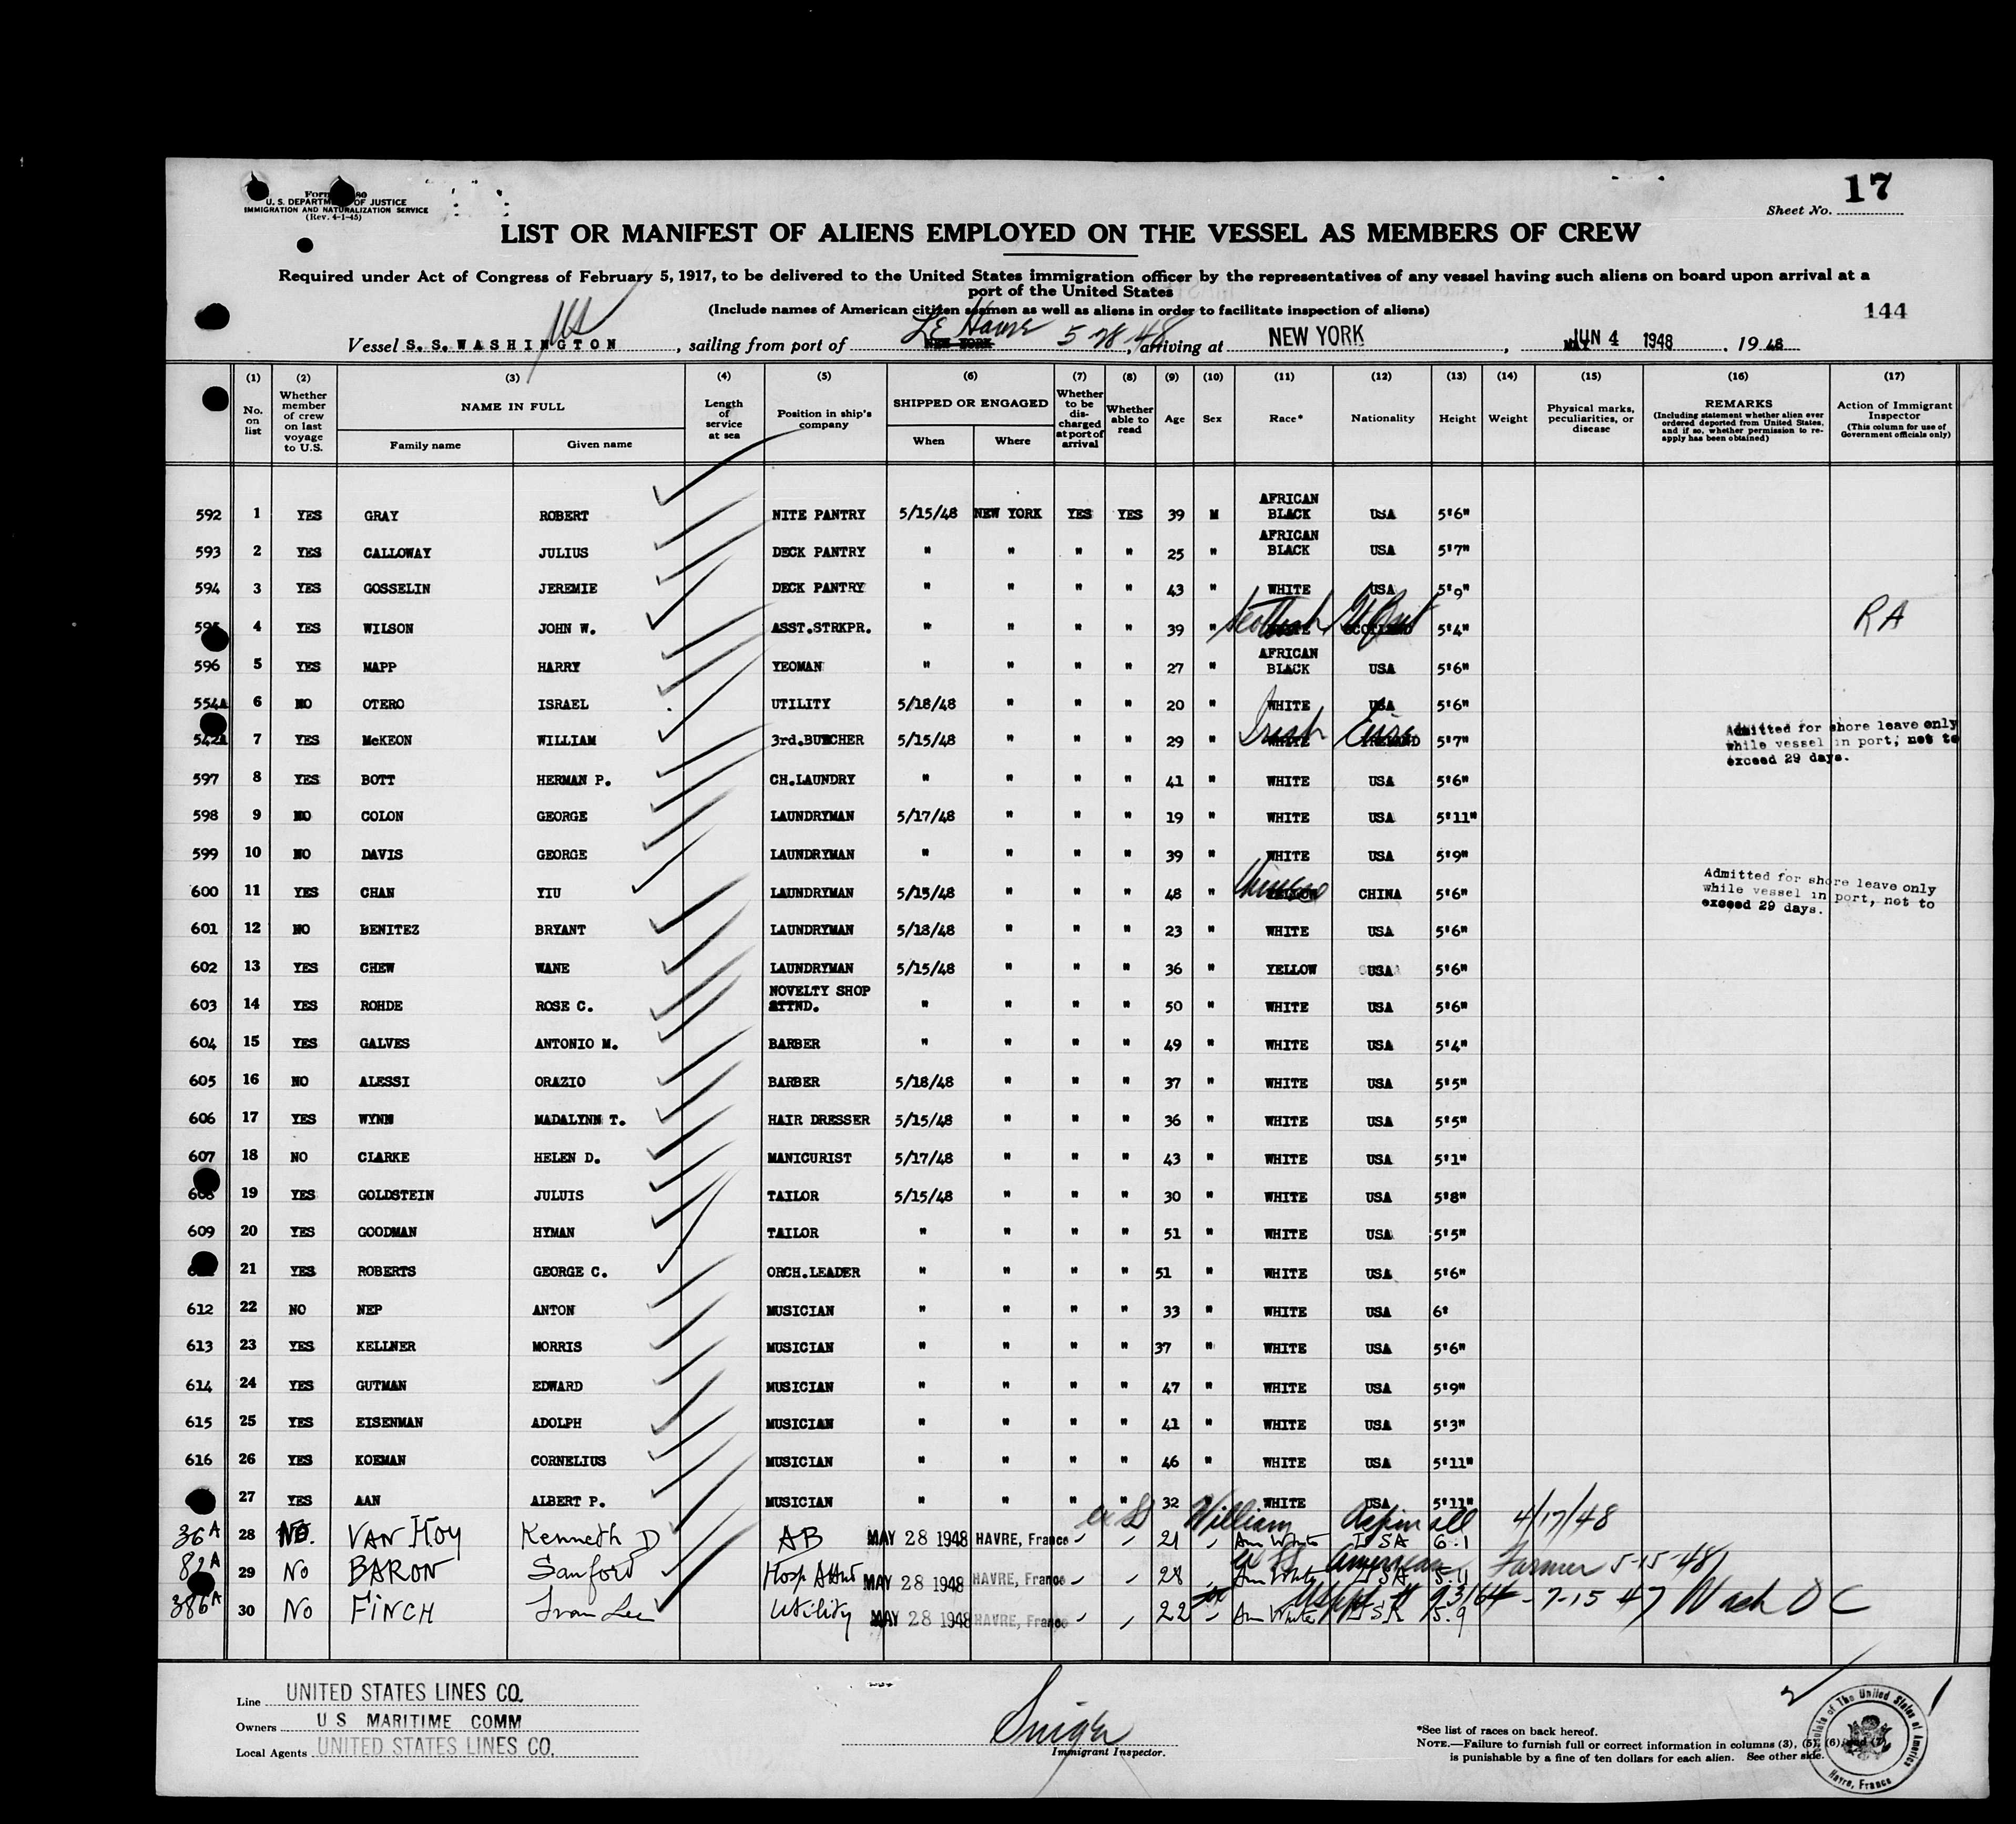 Form 80
U. S. DEPARTMENT OF JUSTICE
IMMIGRATION AND NATURALIZATION SERVICE
(Rev. 4-1-45)
Sheet No. 17
LIST OR MANIFEST OF ALIENS EMPLOYED ON THE VESSEL AS MEMBERS OF CREW
Required under Act of Congress of February 5, 1917, to be delivered to the United States immigration officer by the representatives of any vessel having such aliens on board upon arrival at a
port of the United States
(Include names of American citizen seamen as well as aliens in order to facilitate inspection of aliens)
144
Vessel S. S. WASHINGTON, sailing from port of NEW YORK Le Havre 5 28 48, arriving at NEW YORK, JUN 4 1948, 19 48
(1) (2) (3) (4) (5) (6) (7) (8) (9) (10) (11) (12) (13) (14) (15) (16) (17)
No. on list
Whether member of crew on last voyage to U.S.
NAME IN FULL
Family name Given name
Length of service at sea
Position in ship's company
SHIPPED OR ENGAGED
When Where
Whether to be discharged at port of arrival
Whether able to read
Age Sex Race* Nationality Height Weight
Physical marks, peculiarities, or disease
REMARKS
(Including statement whether alien ever ordered deported from United States, and if so, whether permission to reapply has been obtained)
Action of Immigrant Inspector
(This column for use of Government officials only)
592 1 YES GRAY ROBERT NITE PANTRY 5/15/48 NEW YORK YES YES 39 M AFRICAN BLACK USA 5'6"
593 2 YES CALLOWAY JULIUS DECK PANTRY " " " " 25 " AFRICAN BLACK USA 5'7"
594 3 YES GOSSELIN JEREMIE DECK PANTRY " " " " 43 " WHITE USA 5'9"
595 4 YES WILSON JOHN W. ASST.STRKPR. " " " " 39 " Scottish SCOTLAND 5'4" RA
596 5 YES MAPP HARRY YEOMAN " " " " 27 " AFRICAN BLACK USA 5'6"
554A 6 NO OTERO ISRAEL UTILITY 5/18/48 " " " 20 " WHITE USA 5'6"
542A 7 YES McKEON WILLIAM 3rd.BUTCHER 5/15/48 " " " 29 " WHITE Irish IRELAND Eire 5'7" Admitted for shore leave only while vessel in port, not to exceed 29 days.
597 8 YES BOTT HERMAN P. CH.LAUNDRY " " " " 41 " WHITE USA 5'6"
598 9 NO COLON GEORGE LAUNDRYMAN 5/17/48 " " " 19 " WHITE USA 5'11"
599 10 NO DAVIS GEORGE LAUNDRYMAN " " " " 39 " WHITE USA 5'9"
600 11 YES CHAN YIU LAUNDRYMAN 5/15/48 " " " 48 " YELLOW Chinese CHINA 5'6" Admitted for shore leave only while vessel in port, not to exceed 29 days.
601 12 NO BENITEZ BRYANT LAUNDRYMAN 5/18/48 " " " 23 " WHITE USA 5'6"
602 13 YES CHEW WANE LAUNDRYMAN 5/15/48 " " " 36 " YELLOW USA 5'6"
603 14 YES ROHDE ROSE C. NOVELTY SHOP ATTND. " " " " 50 " WHITE USA 5'6"
604 15 YES GALVES ANTONIO M. BARBER " " " " 49 " WHITE USA 5'4"
605 16 NO ALESSI ORAZIO BARBER 5/18/48 " " " 37 " WHITE USA 5'5"
606 17 YES WYNN MADALYNN T. HAIR DRESSER 5/15/48 " " " 36 " WHITE USA 5'5"
607 18 NO CLARKE HELEN D. MANICURIST 5/17/48 " " " 43 " WHITE USA 5'1"
608 19 YES GOLDSTEIN JULUIS TAILOR 5/15/48 " " " 30 " WHITE USA 5'8"
609 20 YES GOODMAN HYMAN TAILOR " " " " 51 " WHITE USA 5'5"
21 YES ROBERTS GEORGE C. ORCH.LEADER " " " " 51 " WHITE USA 5'6"
612 22 NO NEP ANTON MUSICIAN " " " " 33 " WHITE USA 6'
613 23 YES KELLNER MORRIS MUSICIAN " " " " 37 " WHITE USA 5'6"
614 24 YES GUTMAN EDWARD MUSICIAN " " " " 47 " WHITE USA 5'9"
615 25 YES EISENMAN ADOLPH MUSICIAN " " " " 41 " WHITE USA 5'3"
616 26 YES KOEMAN CORNELIUS MUSICIAN " " " " 46 " WHITE USA 5'11"
27 YES AAN ALBERT P. MUSICIAN " " " " 32 " WHITE USA 5'11"
ex SS William Aspinall 4/17/48
36A 28 NO. VAN HOY Kenneth D AB MAY 28 1948 HAVRE, France 21 Am White USA 6.1
ex SS American Farmer 5-15-48
82A 29 No BARON Sanford Hosp Attnd MAY 28 1948 HAVRE, France 28 Am White USA 5.11
7-15 47 Wash D C
386A 30 No FINCH Ivan Lee Utility MAY 28 1948 HAVRE, France 22 Am White USA 5.9
Line UNITED STATES LINES CO.
Owners U S MARITIME COMM
Local Agents UNITED STATES LINES CO.
Immigrant Inspector.
*See list of races on back hereof.
NOTE.—Failure to furnish full or correct information in columns (3), (5), (6), and (7)
is punishable by a fine of ten dollars for each alien. See other side.
Consulate of The United States of America
Havre, France